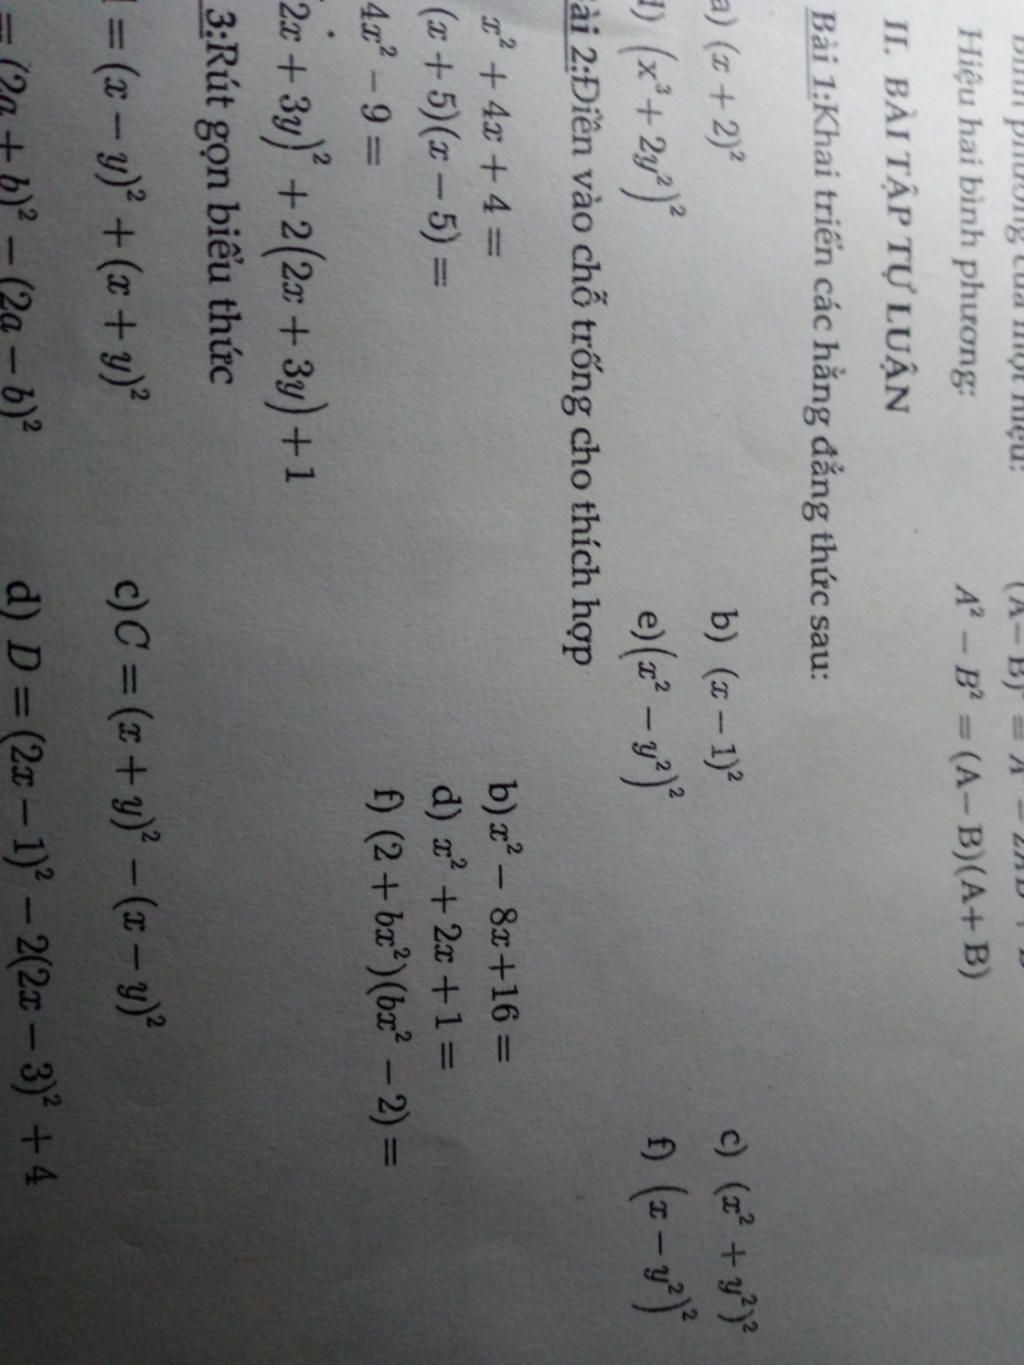 Bình phương của một hiệu: (A − B)² = A² − 2AB +
Hiệu hai bình phương: A² − B² = (A − B)(A + B)
II. BÀI TẬP TỰ LUẬN
Bài 1:Khai triển các hằng đẳng thức sau:
a) (x + 2)² b) (x − 1)² c) (x² + y²)²
d) (x³ + 2y²)² e)(x² − y²)² f) (x − y²)²
ài 2:Điền vào chỗ trống cho thích hợp
x² + 4x + 4 = b) x² − 8x+16 =
(x + 5)(x − 5) = d) x² + 2x + 1 =
4x² − 9 = f) (2 + bx²)(bx² − 2) =
2x + 3y)² + 2(2x + 3y) + 1
3:Rút gọn biểu thức
= (x − y)² + (x + y)² c)C = (x + y)² − (x − y)²
= (2a + b)² − (2a − b)² d) D = (2x − 1)² − 2(2x − 3)² + 4